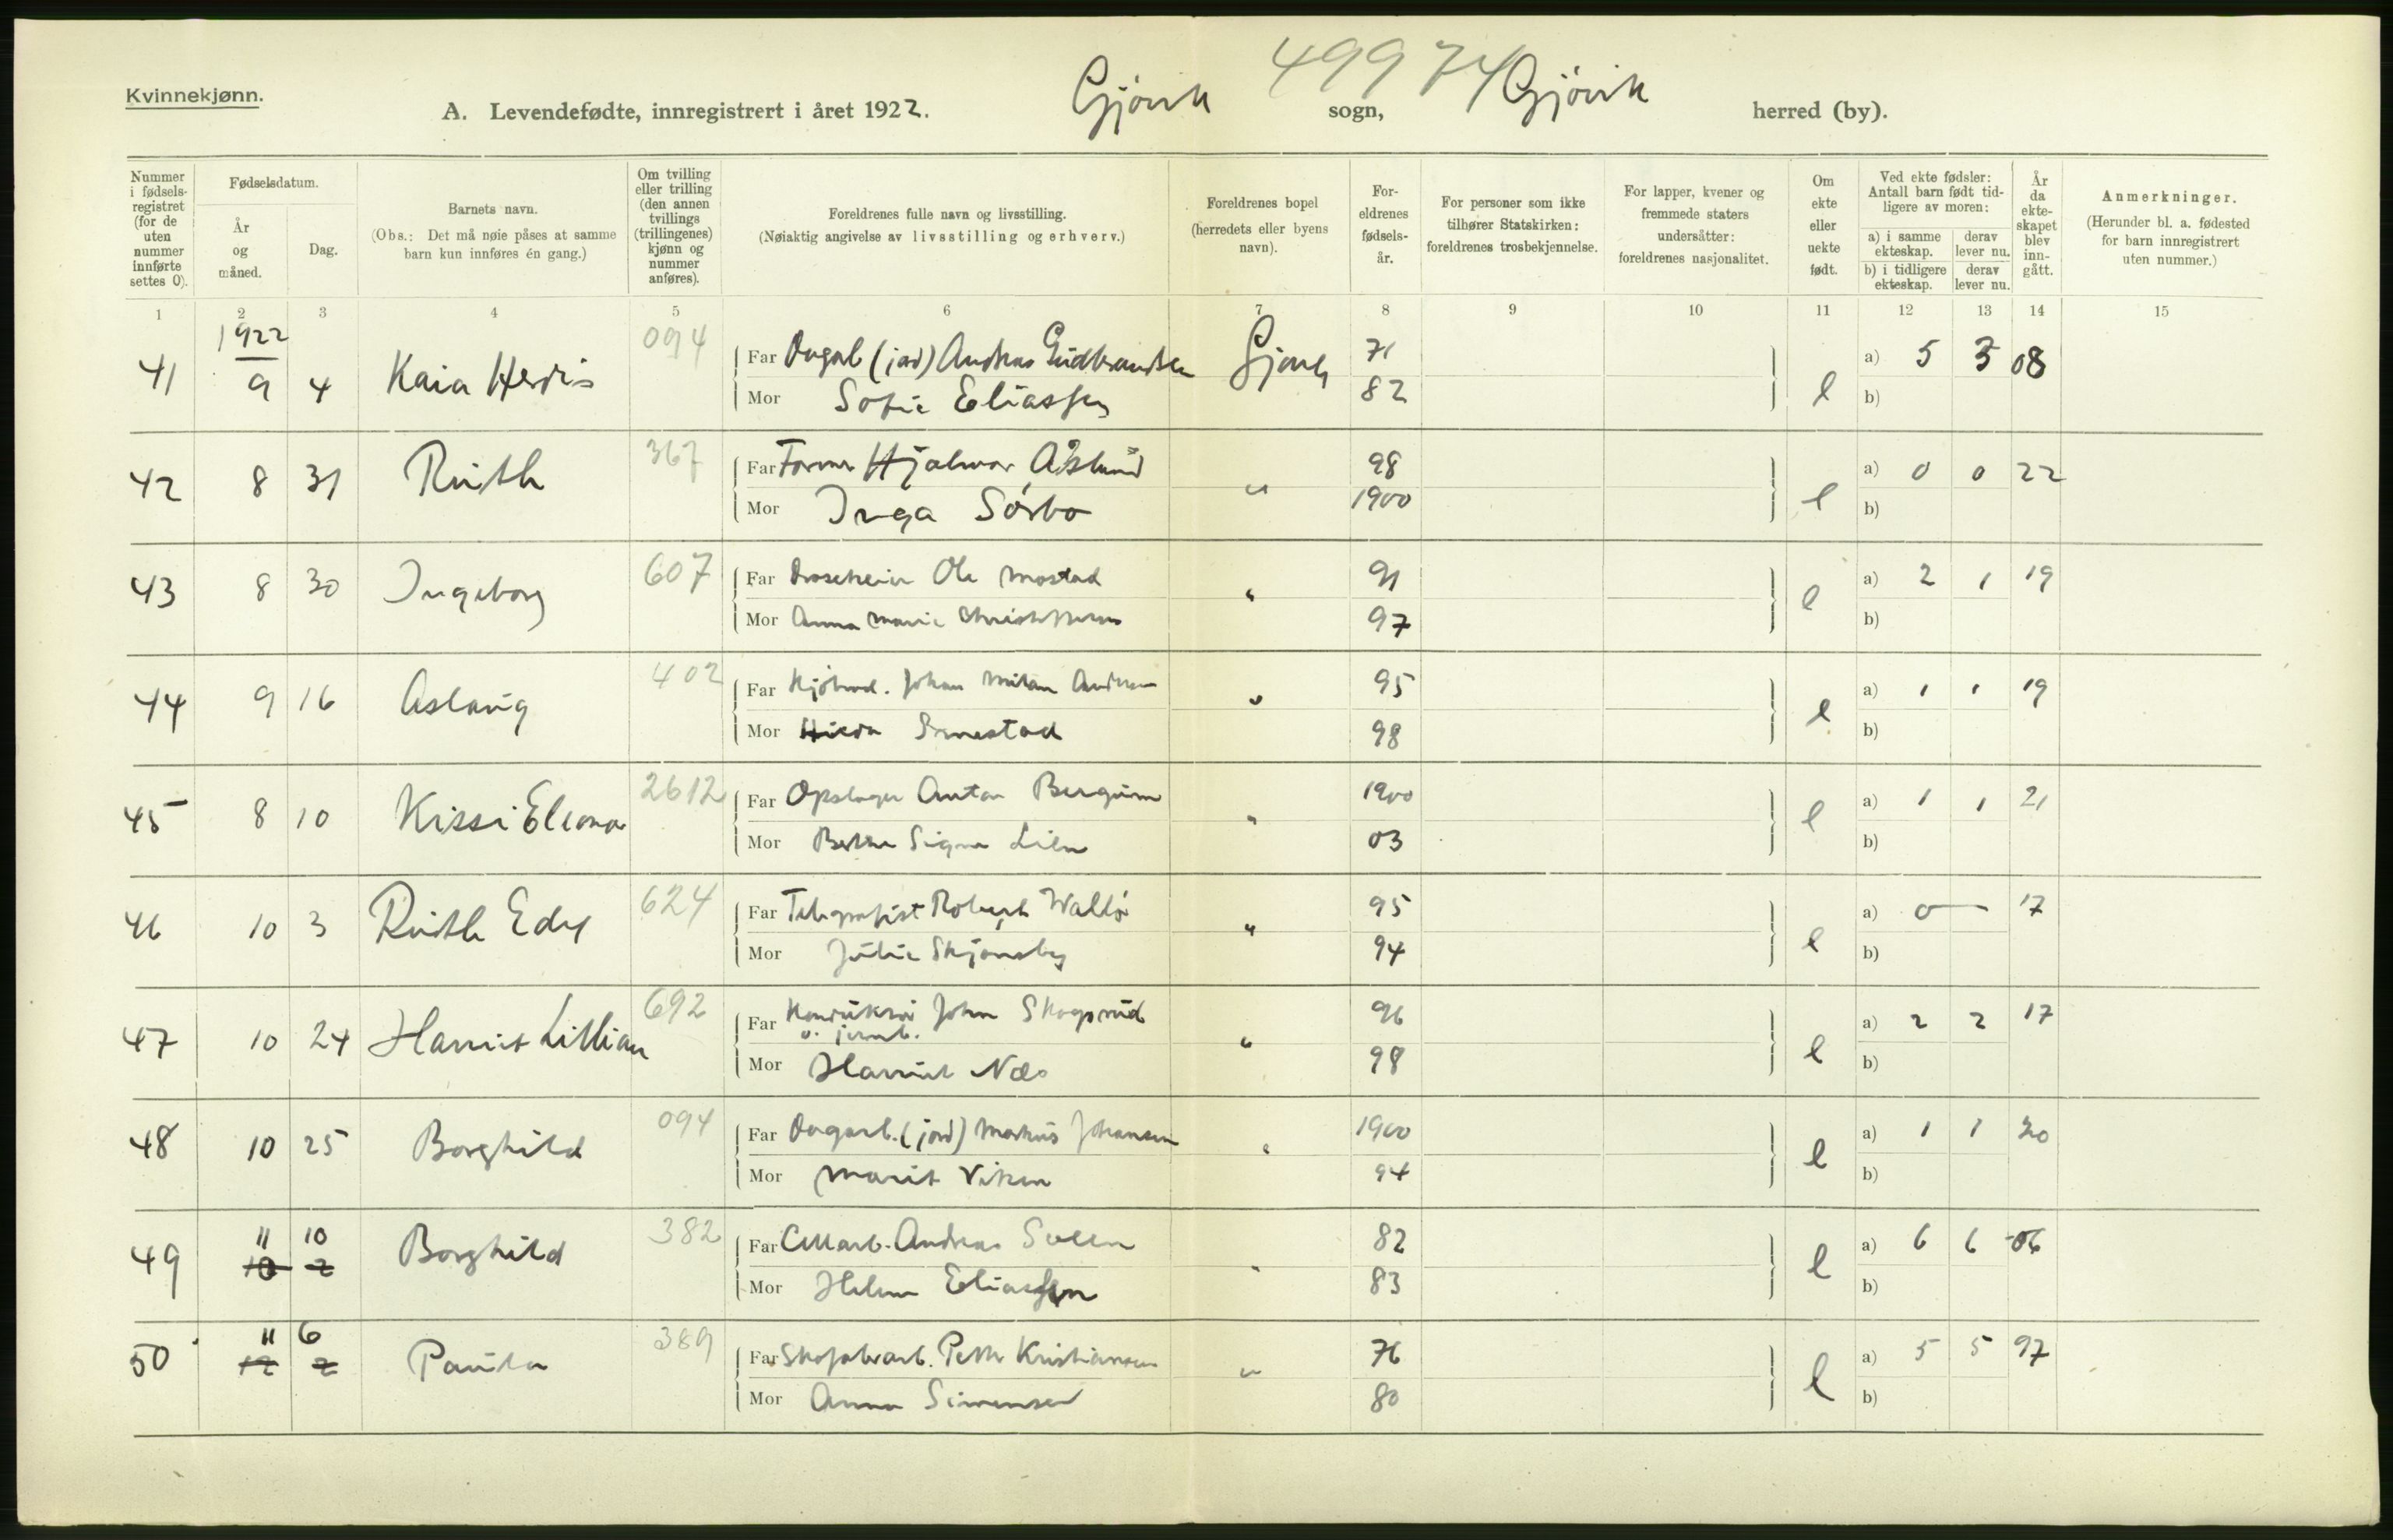 Kvinnekjønn.
A. Levendefødte, innregistrert i året 1922. Gjövik sogn, 49974 Gjövik herred (by).
Nummer i fødsels-registret (for de uten nummer innførte settes 0).
Fødselsdatum.
År og måned.
Dag.
Barnets navn.
(Obs.: Det må nøie påses at samme barn kun innføres én gang.)
Om tvilling eller trilling (den annen tvillings (trillingenes) kjønn og nummer anføres).
Foreldrenes fulle navn og livsstilling.
(Nøiaktig angivelse av livsstilling og erhverv.)
Foreldrenes bopel (herredets eller byens navn).
For-eldrenes fødsels-år.
For personer som ikke tilhører Statskirken: foreldrenes trosbekjennelse.
For lapper, kvener og fremmede staters undersåtter: foreldrenes nasjonalitet.
Om ekte eller uekte født.
Ved ekte fødsler: Antall barn født tid-ligere av moren:
a) i samme ekteskap.
derav lever nu.
b) i tidligere ekteskap.
derav lever nu.
År da ekte-skapet blev inn-gått.
Anmerkninger.
(Herunder bl. a. fødested for barn innregistrert uten nummer.)
1 2 3 4 5 6 7 8 9 10 11 12 13 14 15
1922
41 9 4 Kaia Herdis 094 Far (jord) Andreas Gudbrandsen Gjövik 71 l a) 5 3 08
Mor Sofie Eliassen 82 b)
42 8 31 Ruth 367 Far Former Hjalmar Åslund " 98 l a) 0 0 22
Mor Inga Sörbo 1900 b)
43 8 30 Ingeborg 607 Far Ole Mostad " 91 l a) 2 1 19
Mor Anna Marie 97 b)
44 9 16 Aslaug 402 Far Johan Milan Andersen " 95 l a) 1 1 19
Mor 98 b)
45 8 10 Kissi Eleona 2612 Far Anton Bergum " 1900 l a) 1 1 21
Mor Signe Lien 03 b)
46 10 3 Ruth Edy 624 Far Telegrafist Robert " 95 l a) 0 — 17
Mor Julie Skjönsby 94 b)
47 10 24 Harriet Lillian 692 Far Konduktör John Skogsrud " 96 l a) 2 2 17
v. jernb.
Mor Harriet Næs 98 b)
48 10 25 Borghild 094 Far (jord) Markus Johansen " 1900 l a) 1 1 20
Mor Marit Viken 94 b)
49 11 10 Borghild 382 Far Cellarb. Andreas Sveen " 82 l a) 6 6 06
10 2
Mor Helene Eliassen 83 b)
50 11 6 Paula 389 Far Skofabrarb. Petter Kristiansen " 76 l a) 5 5 97
12 2
Mor Anna Simensen 80 b)